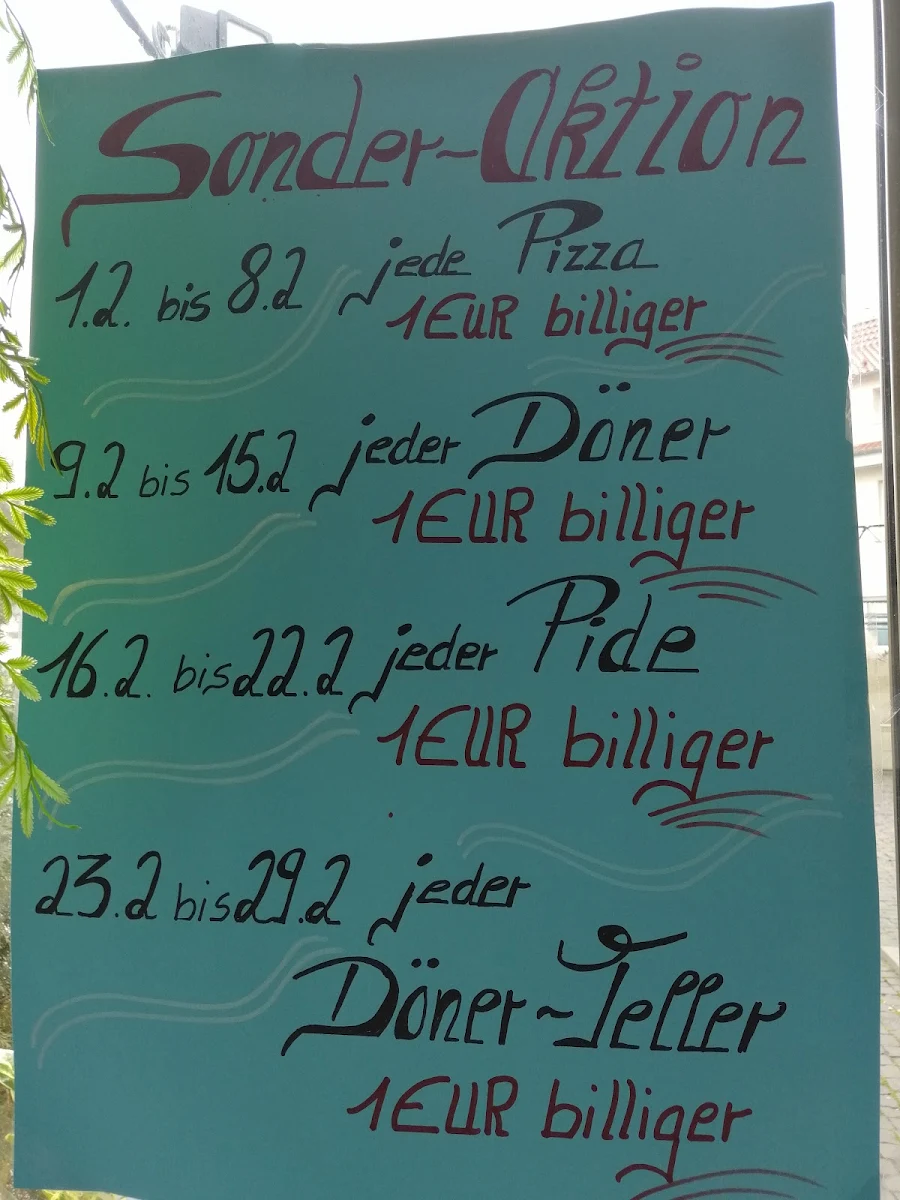 Sonder-Aktion
1.2. bis 8.2 jede Pizza
1EUR billiger
9.2 bis 15.2 jeder Döner
1EUR billiger
16.2. bis 22.2 jeder Pide
1EUR billiger
23.2 bis 29.2 jeder
Döner-Teller
1EUR billiger